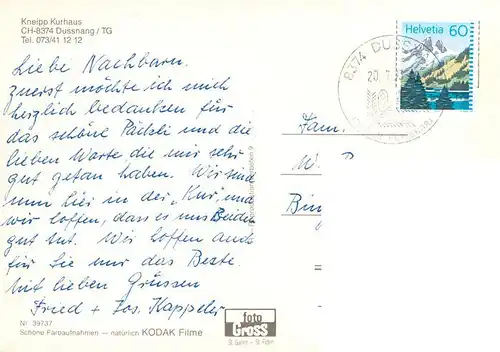 Kneipp Kurhaus
CH-8374 Dussnang / TG
Tel. 073/41 12 12
Liebe Nachbarn.
zuerst möchte ich mich
herzlich bedanken für
das schöne Päckli und die
lieben Worte die mir sehr
gut getan haben. Wir sind
nun hier in der „Kur" und
wir hoffen, dass es uns Beiden
gut tut. Wir hoffen auch
für Sie nur das Beste.
Mit lieben Grüssen
Fried + Jos. Kappeler
Nr. 39737
Schöne Farbaufnahmen — natürlich KODAK Filme
foto
Gross
St. Gallen
Helvetia 60
8374 DUSS
20.
Fam.
W.
Bin